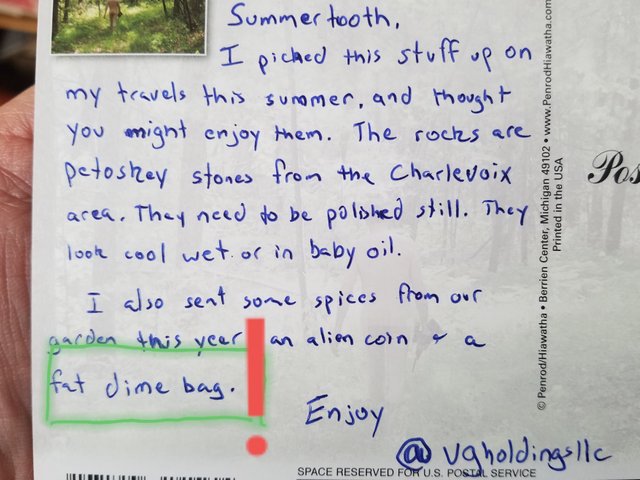 Summertooth,
I picked this stuff up on
my travels this summer, and thought
you might enjoy them. The rocks are
petoskey stones from the Charlevoix
area. They need to be polished still. They
look cool wet or in baby oil.
I also sent some spices from our
garden this year, an alien coin & a
fat dime bag.
Enjoy
@vgholdingsllc
SPACE RESERVED FOR U.S. POSTAL SERVICE
© Penrod/Hiawatha • Berrien Center, Michigan 49102 • www.PenrodHiawatha.com
Printed in the USA
Pos